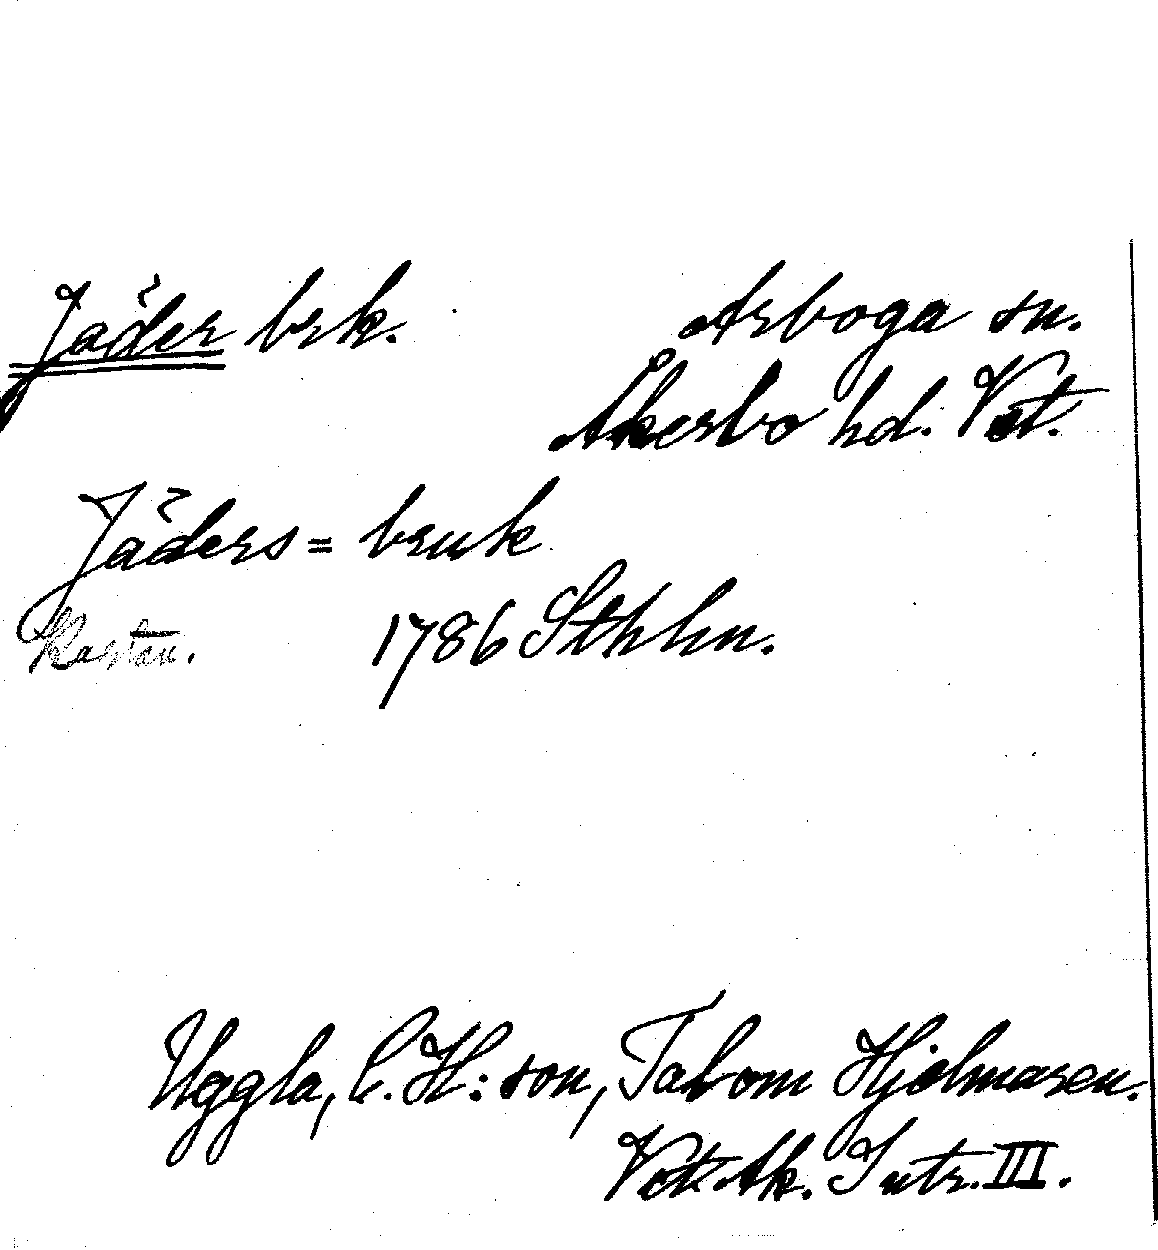 Jäder brk. Arboga sn.
Åkerbo hd. Vst.
Jäders = bruk
Kartan. 1786 Sthlm.
Uggla, C. H:son, Tal om Hjelmaren.
Vet. Ak. Intr. III.